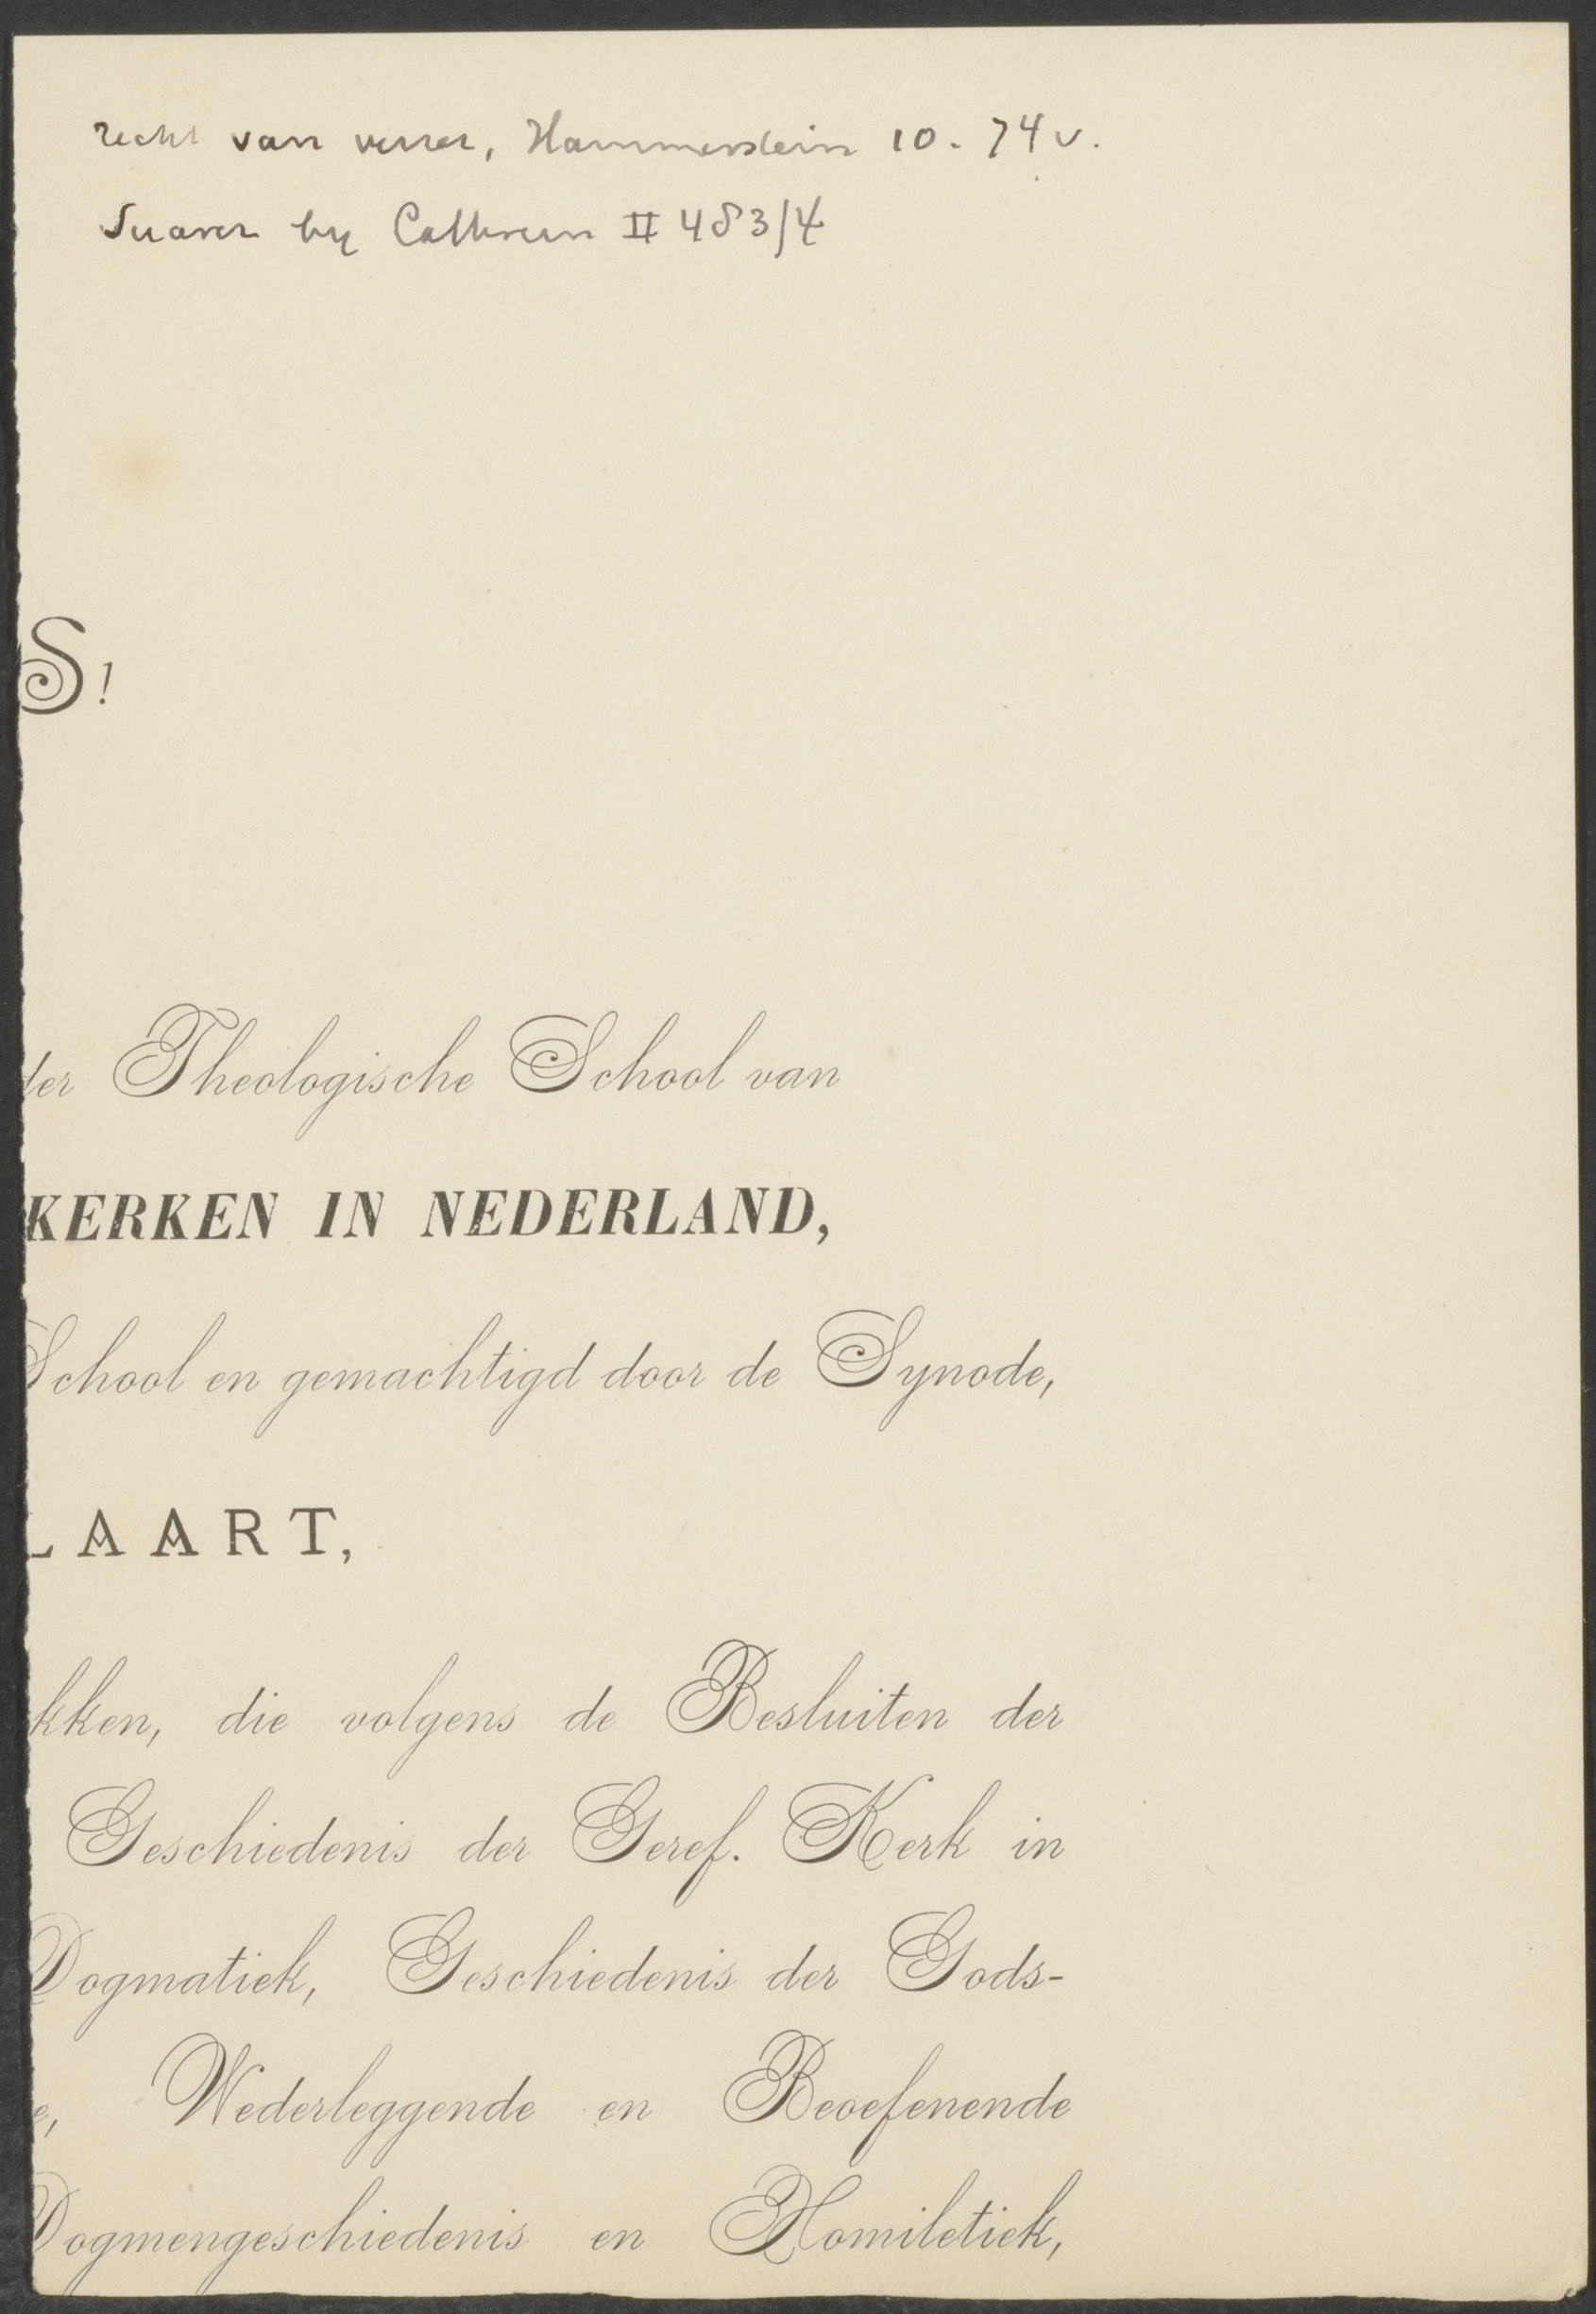 recht van verzet, Hammerstein 10. 74 v.
Suarez by Cathrein II 483/4
S!
der Theologische School van
KERKEN IN NEDERLAND,
School en gemachtigd door de Synode,
LAART,
kken, die volgens de Besluiten der
Geschiedenis der Geref. Kerk in
Dogmatiek, Geschiedenis der Gods-
e, Wederleggende en Beoefenende
Dogmengeschiedenis en Homiletiek,